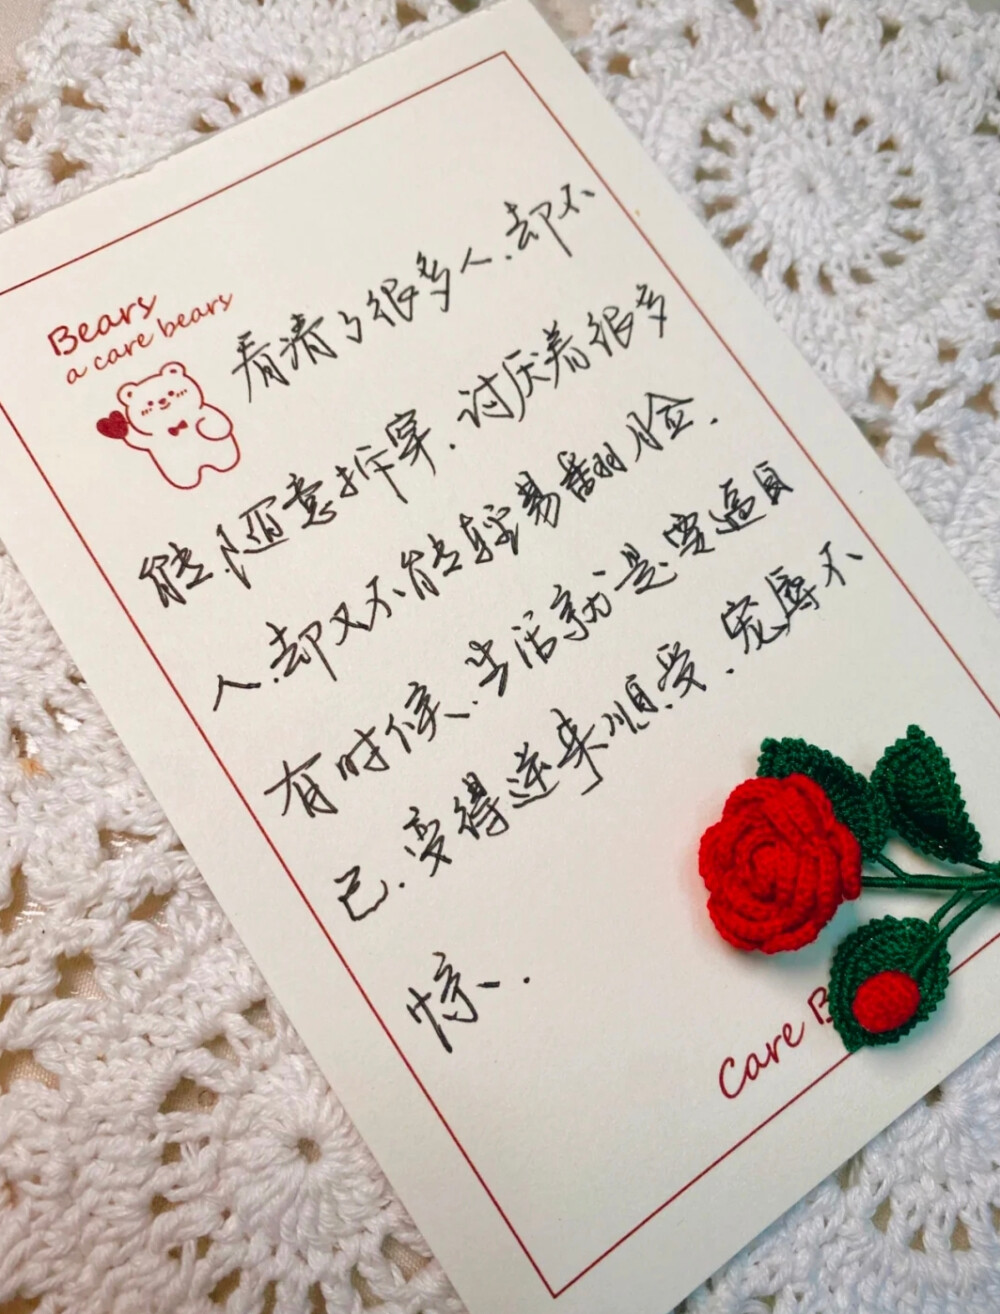 Bears
a care bears
看清了很多人.却不
能随意拆穿.讨厌着很多
人.却又不能轻易翻脸.
有时候.生活就是要逼自
己.变得逆来顺受.宠辱不
惊.
Care B